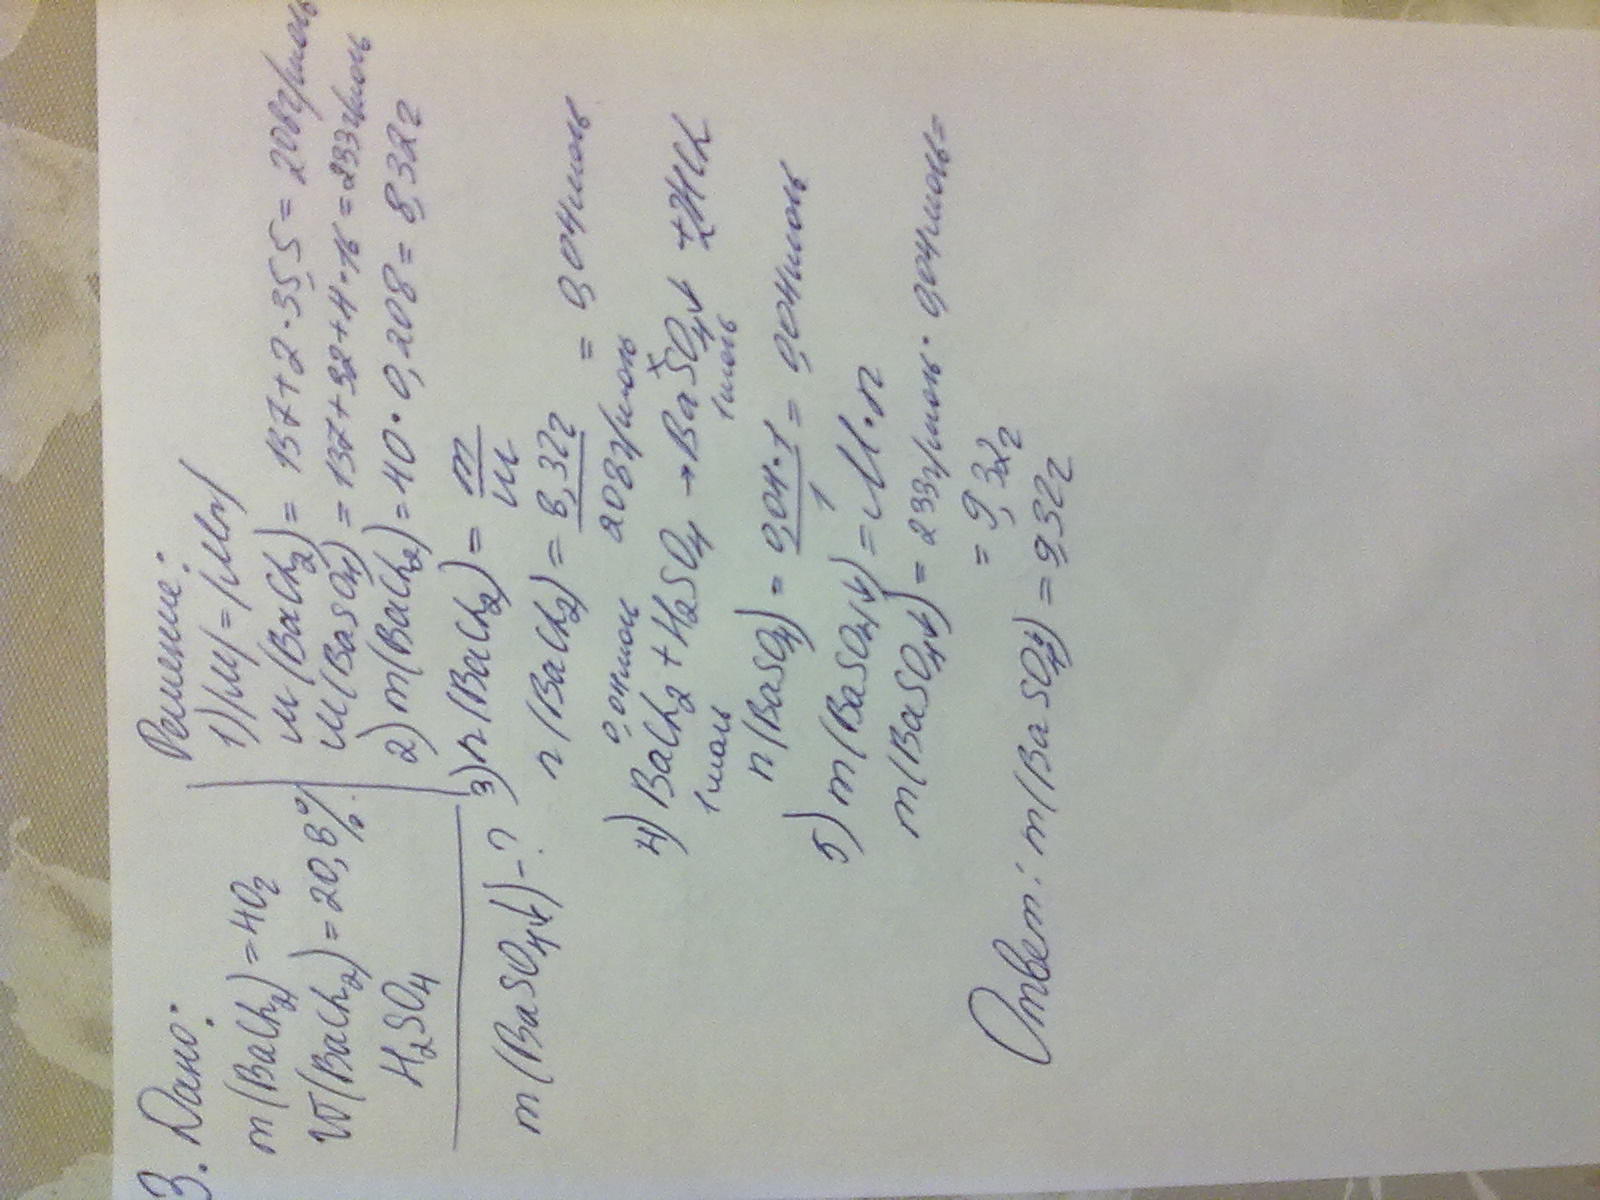 3. Дано:
m(BaCl₂) = 40г
ω(BaCl₂) = 20,8%
H₂SO₄
m(BaSO₄↓) - ?
Решение:
1) |M| = |Mr|
M(BaCl₂) = 137+2·35,5 = 208г/моль
M(BaSO₄) = 137+32+4·16 = 233г/моль
2) m(BaCl₂) = 40·0,208 = 8,32г
3) n(BaCl₂) = m/M
n(BaCl₂) = 8,32г / 208г/моль = 0,04моль
0,04моль х
4) BaCl₂ + H₂SO₄ → BaSO₄↓ + 2HCl
1моль 1моль
n(BaSO₄) = 0,04·1 / 1 = 0,04моль
5) m(BaSO₄↓) = M·n
m(BaSO₄↓) = 233г/моль · 0,04моль =
= 9,32г
Ответ: m(BaSO₄↓) = 9,32г